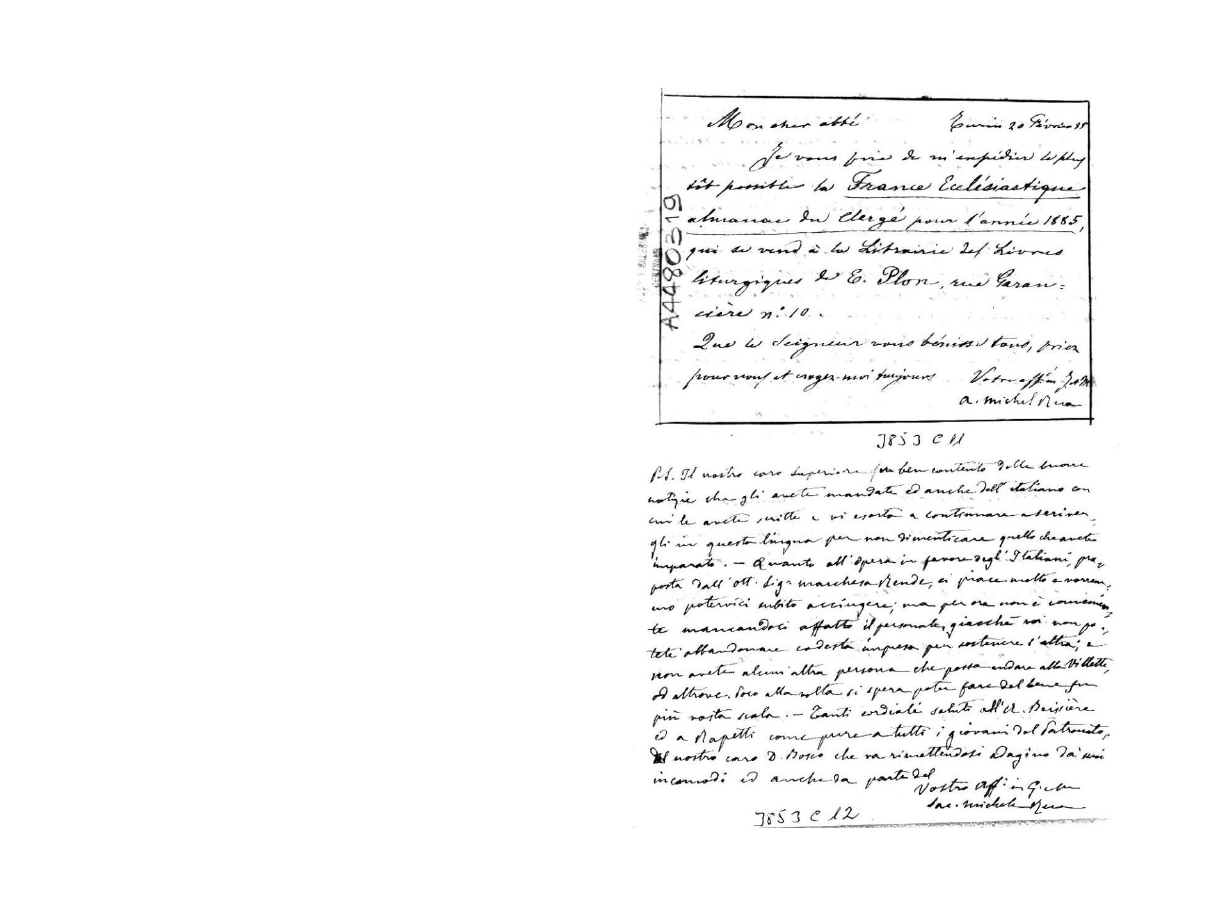 Mon cher abbé Turin 20 Février 85
Je vous prie de m'expédier le plus
tôt possible la France Ecclésiastique
almanac du Clergé pour l'année 1885,
qui se vend à la Librairie des Livres
liturgiques de E. Plon, rue Garan-
cière n.° 10.
Que le Seigneur vous bénisse tous, priez
pour nous et croyez-moi toujours Votre aff.
a. Michel Rua
A4480319
3853 C 11
P.S. Il nostro caro Superiore fu ben contento delle buone
notizie che gli avete mandate ed anche dell'italiano con
cui le avete scritte e vi esorta a continuare a scriver
gli in questa lingua per non dimenticare quello che avete
imparato. — Quanto all'opera in favore degli Italiani, pro-
posta dall'ott. Sig.ª marchesa Rende, ci piace molto e vorrem
mo potervici subito accingere; ma per ora non è convenien-
te mancandoci affatto il personale, giacchè voi non po-
tete abbandonare codesta impresa per sostenere l'altra, e
non avete alcun'altra persona che possa andare alla Villette,
od altrove. Poco alla volta si spera poter fare del bene su
più vasta scala. — Tanti cordiali saluti all'A. Beissière
ed a Rapetti come pure a tutti i giovani del Patronato,
del nostro caro D. Bosco che va rimettendosi adagino da' suoi
incomodi ed anche da parte del
Vostro Aff. in G. e M.
Sac. Michele Rua
3853 C 12